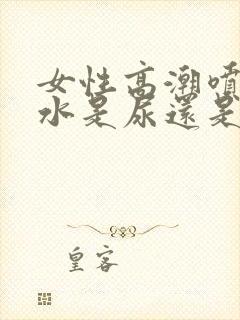 女性高潮噴
水是尿還是
皇客